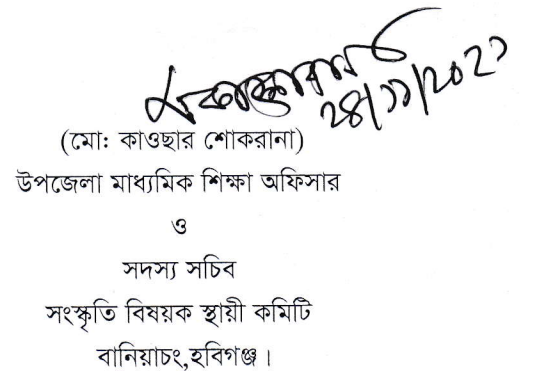 ২৪/১১/২০২১
(মো: কাওছার শোকরানা)
উপজেলা মাধ্যমিক শিক্ষা অফিসার
ও
সদস্য সচিব
সংস্কৃতি বিষয়ক স্থায়ী কমিটি
বানিয়াচং,হবিগঞ্জ।